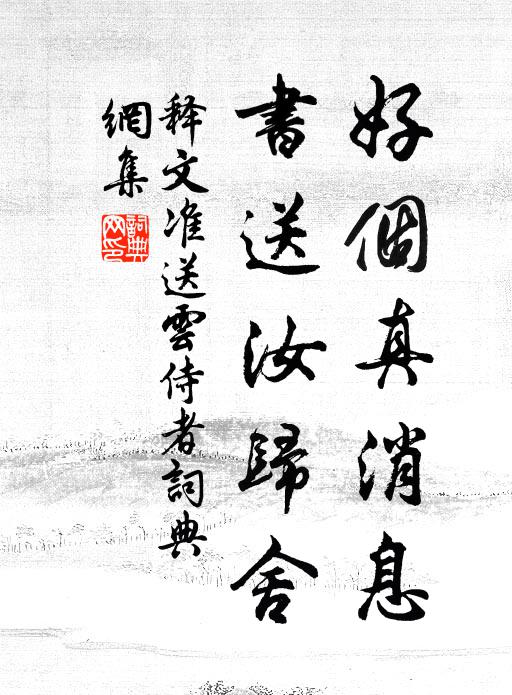 好個真消息
書送汝歸舍
释文准送雲侍者詞典
網集
詞典
网印